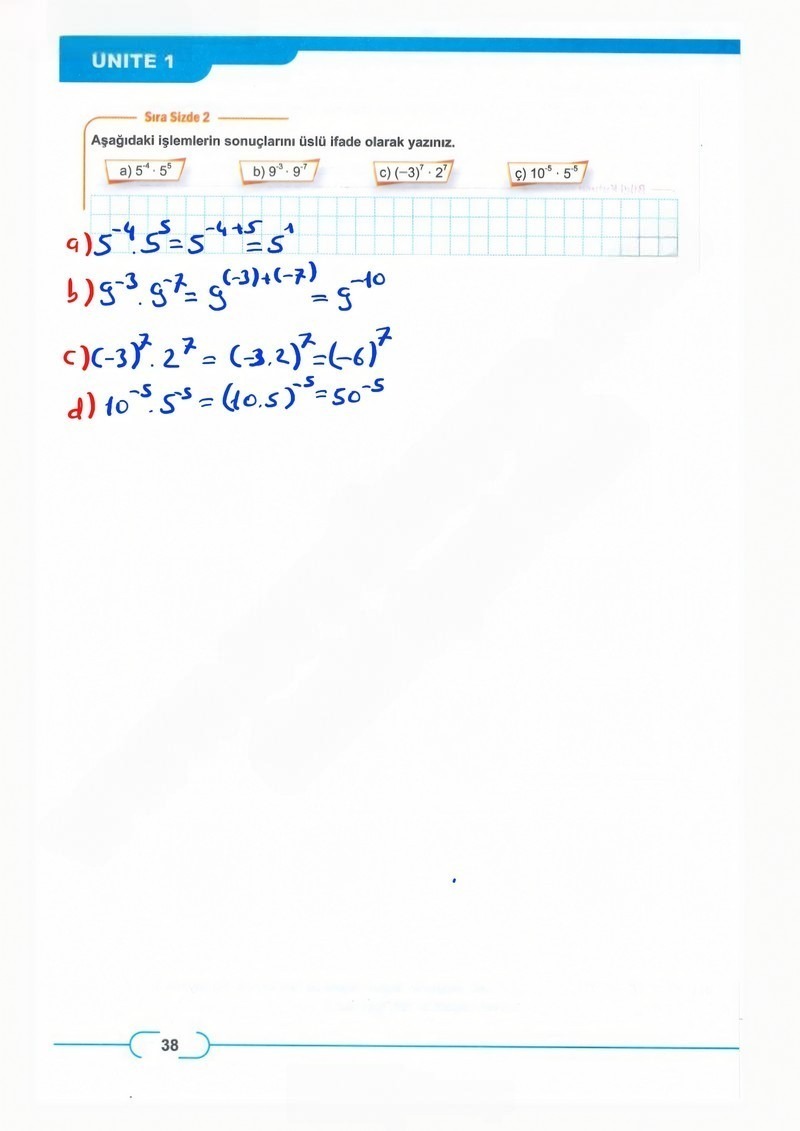 UNITE 1
Sıra Sizde 2
Aşağıdaki işlemlerin sonuçlarını üslü ifade olarak yazınız.
a) 5⁻⁴ · 5⁵ b) 9⁻³ · 9⁻⁷ c) (−3)⁷ · 2⁷ ç) 10⁻⁵ · 5⁻⁵
a) 5⁻⁴ . 5⁵ = 5⁻⁴⁺⁵ = 5¹
b) 9⁻³ . 9⁻⁷ = 9⁽⁻³⁾⁺⁽⁻⁷⁾ = 9⁻¹⁰
c) (-3)⁷ . 2⁷ = (-3.2)⁷ = (-6)⁷
d) 10⁻⁵ . 5⁻⁵ = (10.5)⁻⁵ = 50⁻⁵
38